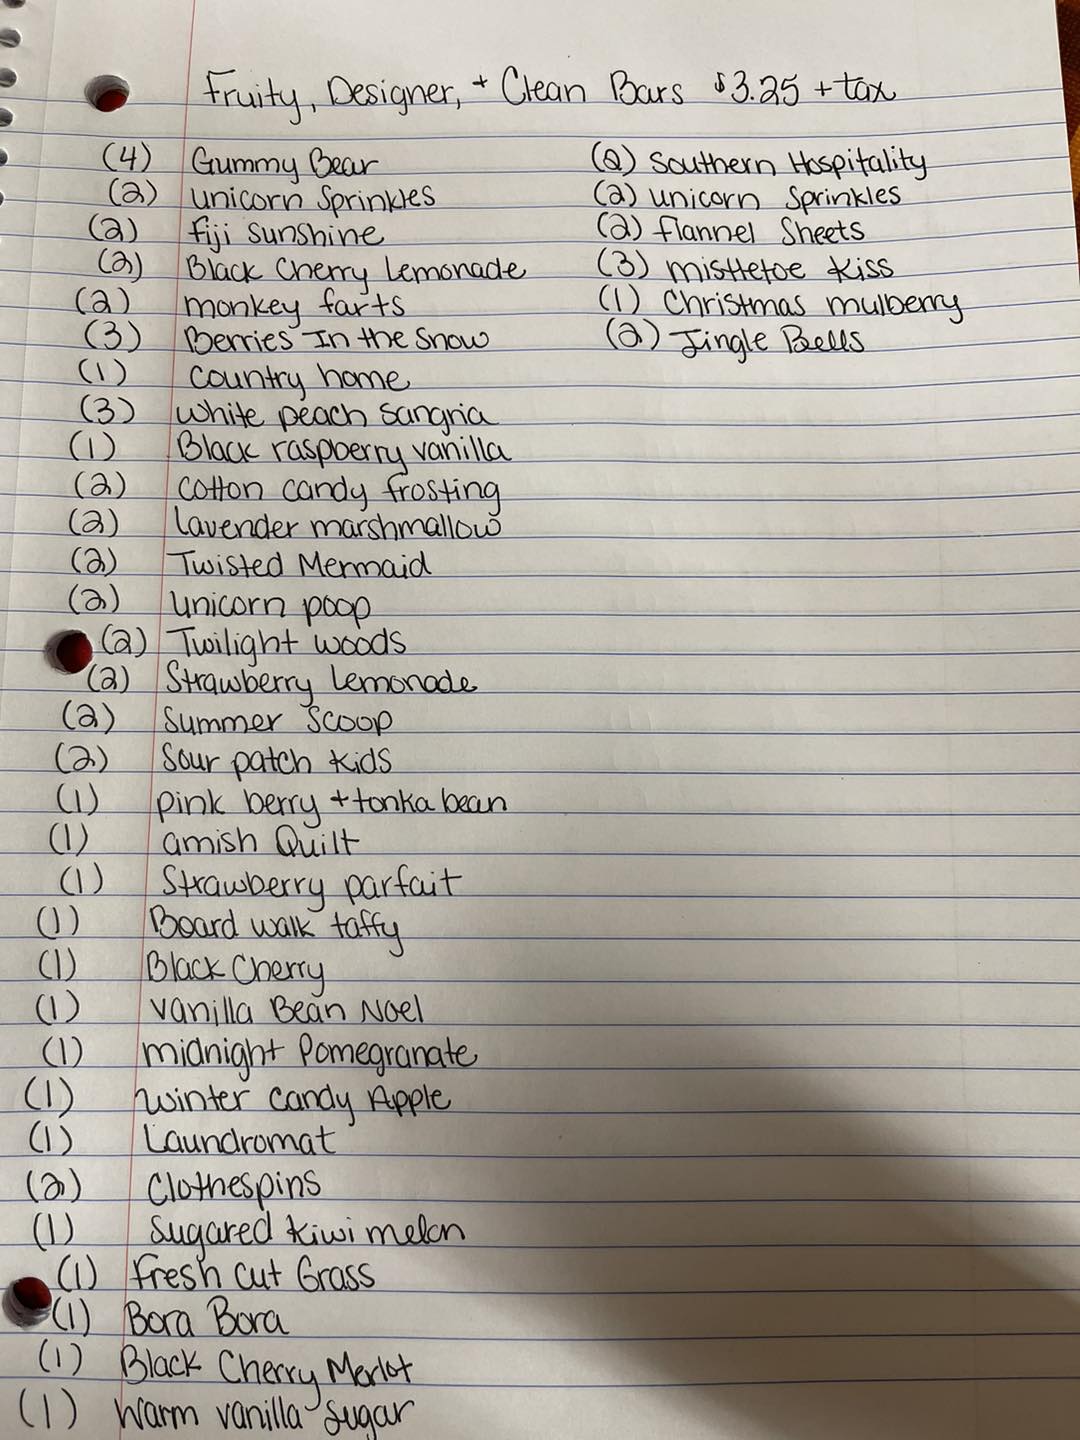 Fruity, Designer, + Clean Bars $3.25 + tax
(4) Gummy Bear
(2) unicorn Sprinkles
(2) fiji sunshine
(2) Black Cherry Lemonade
(2) monkey farts
(3) Berries In the Snow
(1) country home
(3) white peach sangria
(1) Black raspberry vanilla
(2) cotton candy frosting
(2) lavender marshmallow
(2) Twisted Mermaid
(2) unicorn poop
(2) Twilight woods
(2) Strawberry Lemonade
(2) Summer Scoop
(2) Sour patch kids
(1) pink berry + tonka bean
(1) amish Quilt
(1) Strawberry parfait
(1) Board walk taffy
(1) Black Cherry
(1) Vanilla Bean Noel
(1) midnight Pomegranate
(1) winter candy Apple
(1) Laundromat
(2) Clothespins
(1) Sugared kiwi melon
(1) fresh cut Grass
(1) Bora Bora
(1) Black Cherry Merlot
(1) Warm vanilla Sugar
(2) Southern Hospitality
(2) unicorn Sprinkles
(2) flannel Sheets
(3) mistletoe kiss
(1) Christmas mulberry
(2) Jingle Bells